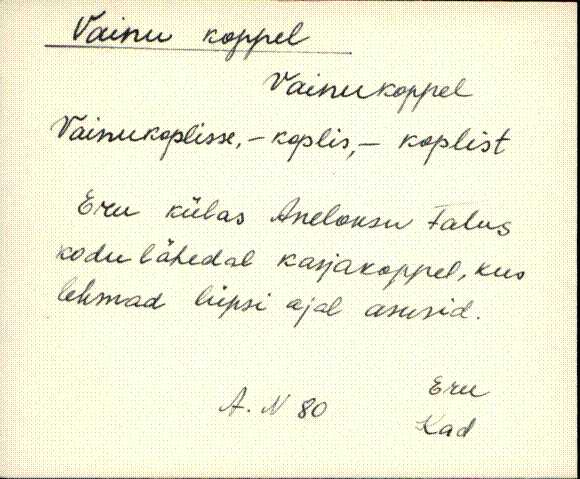 Vainu koppel
Vainukoppel
Vainukoplisse, - koplis, - koplist
Eru külas Aneloksu talus
kodu lähedal karjakoppel, kus
lehmad lüpsi ajal asusid.
A. N 80
Eru
Kad